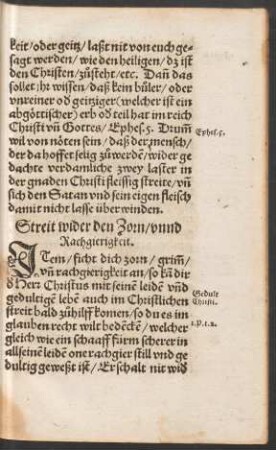 keit/oder geitz/laßt nit von euch ge-
sagt werden/wie den heiligen/dz ist
den Christen/zůsteht/etc. Dañ das
sollet jhr wissen/daß kein bůler/oder
vnreiner od geitziger(welcher ist ein
abgöttischer) erb od teil hat im reich
Christi vñ Gottes/Ephes.5. Drum̃
Ephes.5.
wil von nöten sein/daß der mensch/
der da hoffet selig zůwerdẽ/wider ge
dachte verdamliche zwey laster in
der gnaden Christi fleissig streite/vñ
sich den Satan vnd sein eigen fleisch
damit nicht lasse überwinden.
Streit wider den Zorn/vnnd
Rachgirigkeit.
ITem/ficht dich zorn/grim̃/
vñ rachgierigkeit an/so kã dir
d Herr Christus mit seinẽ leidẽ vñd
gedultigẽ lebẽ auch im Christlichen
Gedult
Christi.
streit bald zůhilff komen/so du es im
glauben recht wilt bedẽckẽ/welcher
1.P.t.2.
gleich wie ein schaaff fürm scherer in
all seinẽ leidẽ one rachgier still vnd ge
dultig geweßt ist/Er schalt nit wid